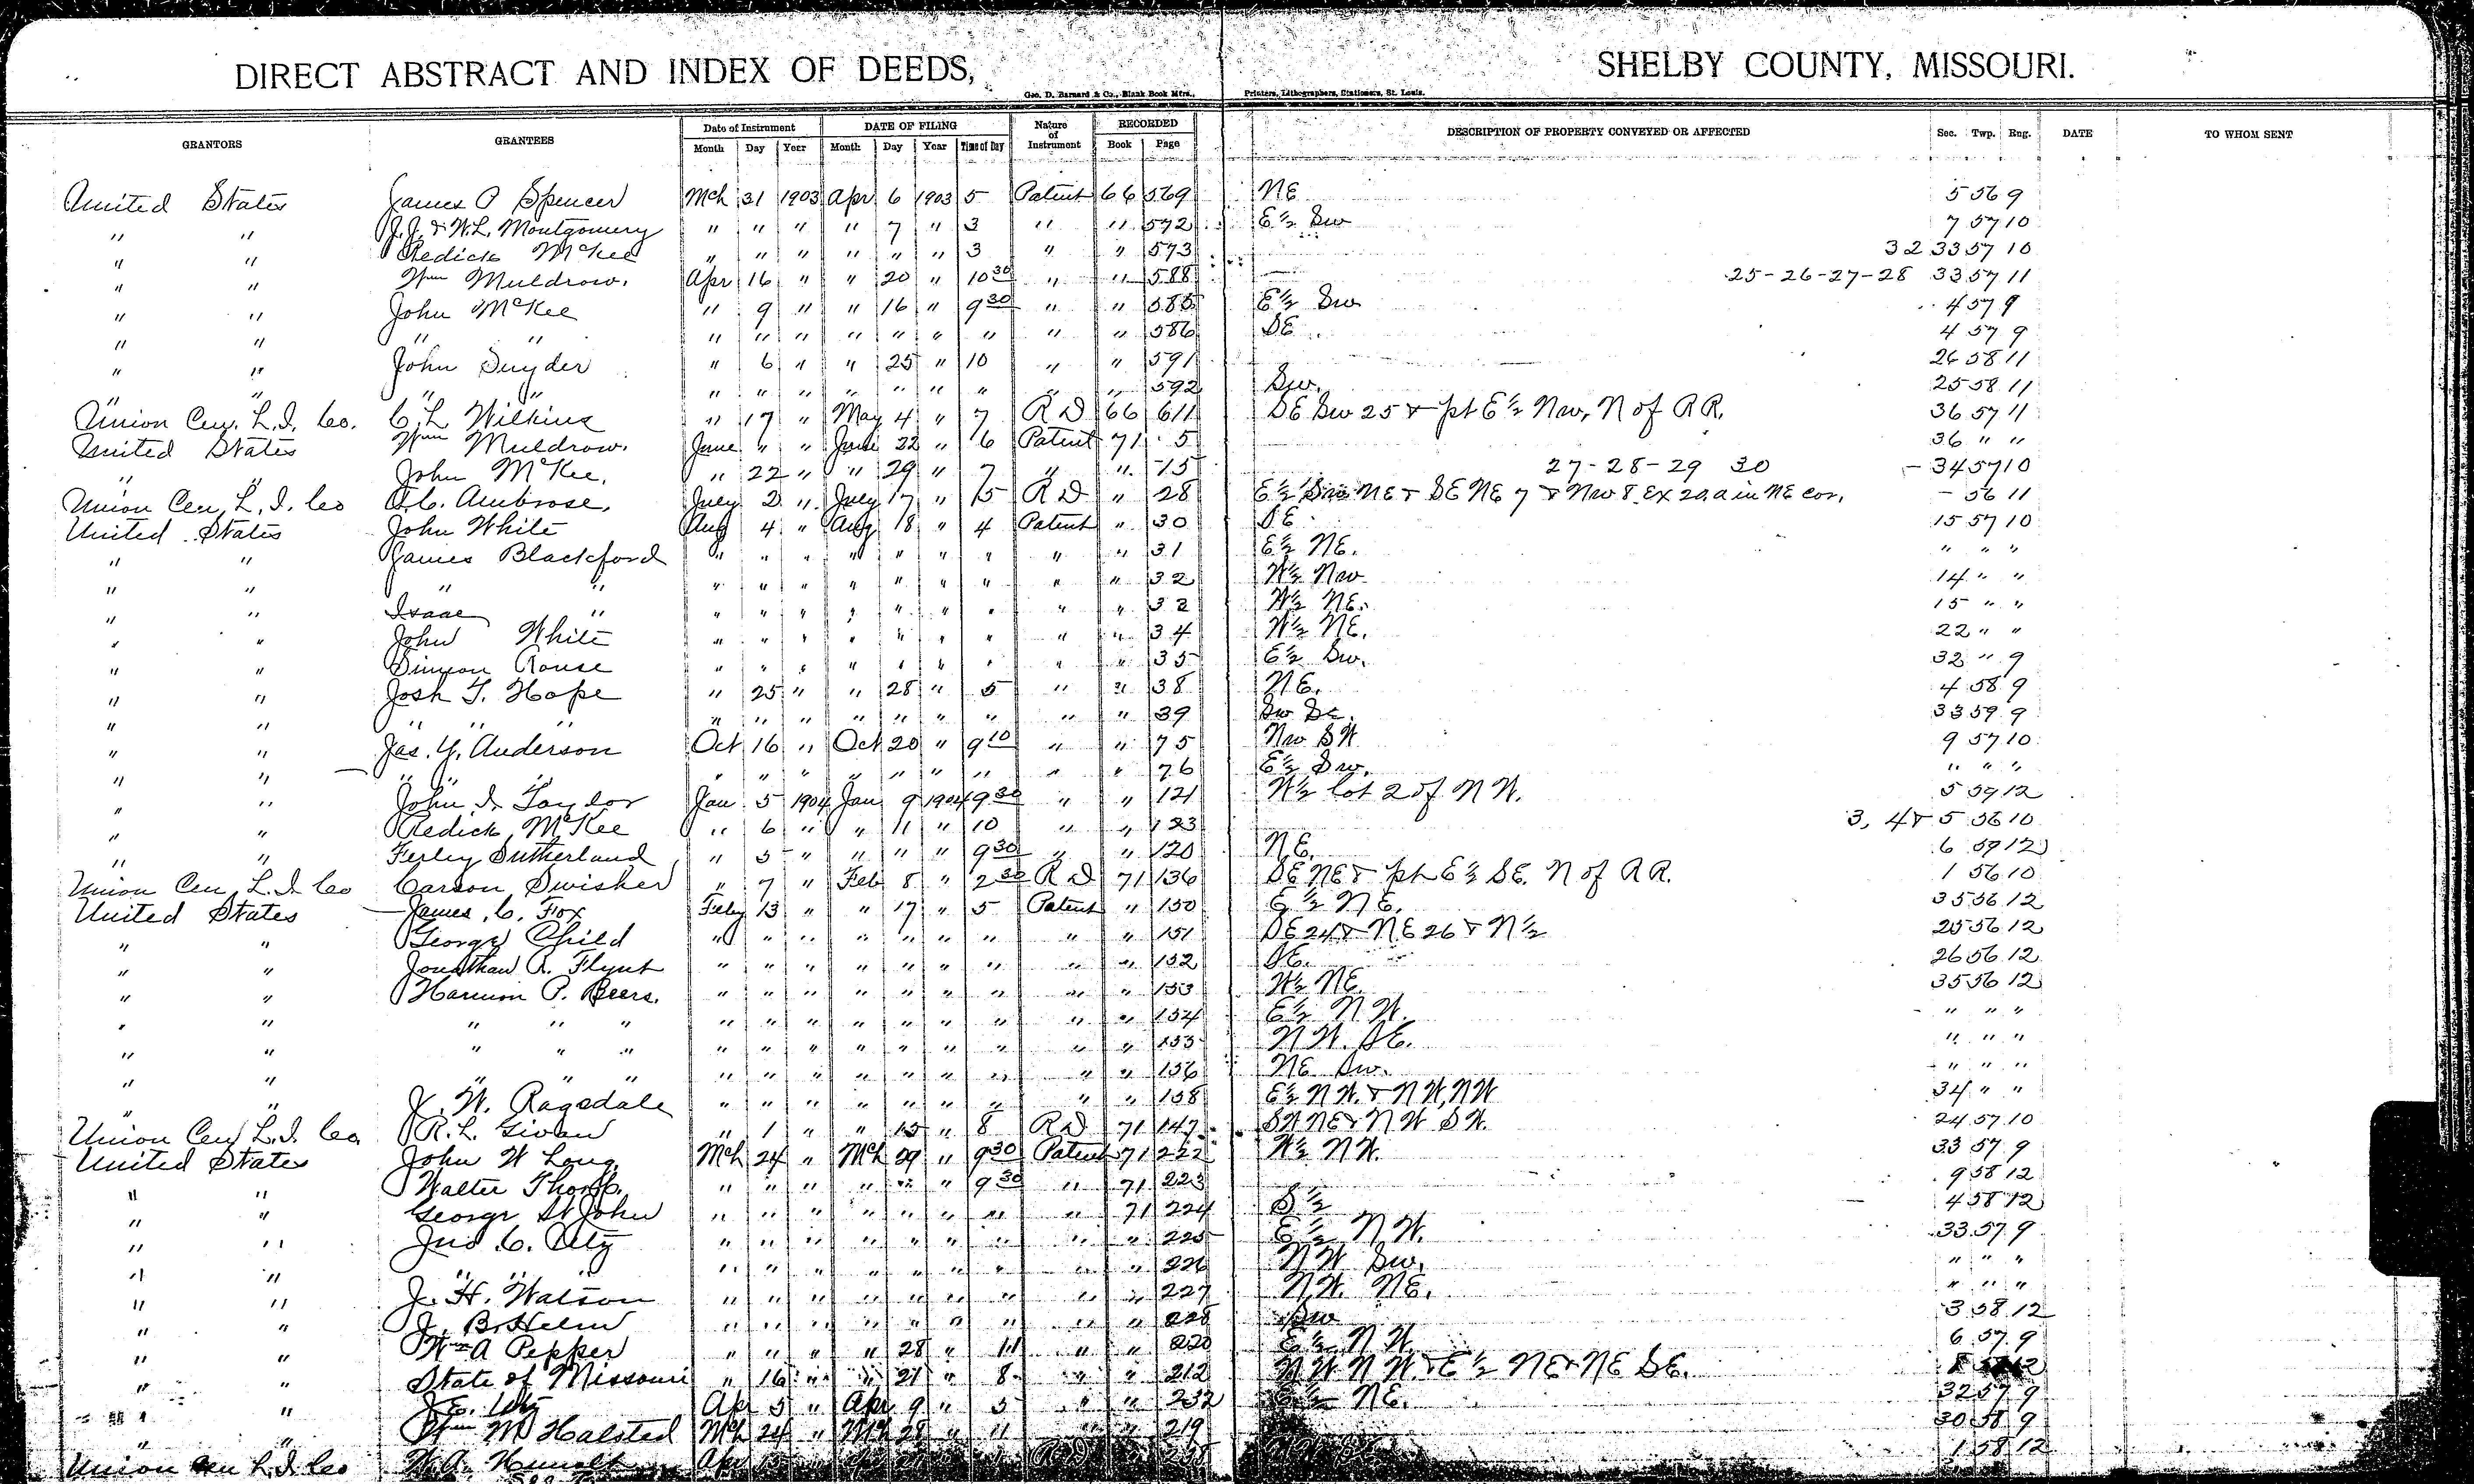 DIRECT ABSTRACT AND INDEX OF DEEDS, SHELBY COUNTY, MISSOURI.
Geo. D. Barnard & Co., Blank Book Mfrs., Printers, Lithographers, Stationers, St. Louis.
GRANTORS GRANTEES Date of Instrument DATE OF FILING Nature of Instrument RECORDED DESCRIPTION OF PROPERTY CONVEYED OR AFFECTED Sec. Twp. Rng. DATE TO WHOM SENT
Month Day Year Month Day Year Time of Day Book Page
United States James P Spencer Mch 31 1903 Apr 6 1903 5 Patent 66 569 NE 5 56 9
" " J.J. & W.L. Montgomery " " " " 7 " 3 " " 572 E½ Sw 7 57 10
" " Redick McKee " " " " " " 3 " " 573 32 33 57 10
" " Wm Muldrow. Apr 16 " " 20 " 10 30 " " 588 25-26-27-28 33 57 11
" " John McKee " 9 " " 16 " 9 30 " " 585 E½ Sw 4 57 9
" " " " " " " " " " " " " 586 SE 4 57 9
" " John Snyder " 6 " " 25 " 10 " " 591 26 58 11
" " " " " " " " " " " " " 592 Sw. 25 58 11
Union Cen. L.I. Co. C.L. Wilkins " 17 " May 4 " 7 R D 66 611 SE Sw 25 & pt E½ Nw, N of R R. 36 57 11
United States Wm Muldrow. June " " June 22 " 6 Patent 71 5 36 " "
" " John McKee. " 22 " " 29 " 7 " " 15 27-28-29 30 - 34 57 10
Union Cen L.I. Co A.C. Ambrose. July 2 " July 17 " 15 R D " 28 E½ Sw NE & SE NE 7 & Nw 8. Ex 20a in NE cor. - 56 11
United States John White Aug 4 " Aug 18 " 4 Patent " 30 SE 15 57 10
" " James Blackford " " " " " " " " " 31 E½ NE. " " "
" " " " " " " " " " " " " 32 W½ Nw 14 " "
" " Isaac " " " " " " " " " " 32 W½ NE. 15 " "
" " John White " " " " " " " " " 34 W½ NE. 22 " "
" " Simeon Rouse " " " " " " " " " 35 E½ Sw. 32 " 9
" " Josh T. Hope " 25 " " 28 " 5 " " 38 NE. 4 58 9
" " " " " " " " " " " " " " 39 Sw Se. 33 59 9
" " Jas. Y. Anderson Oct 16 " Oct 20 " 9 10 " " 75 Nw SW 9 57 10
" " " " " " " " " " " " " 76 E½ Sw. " " "
" " John I. Taylor Jan 5 1904 Jan 9 1904 9 30 " " 121 W½ lot 2 of NW. 5 59 12
" " Redick McKee " 6 " " 11 " 10 " " 123 3, 4 & 5 56 10
" " Ferley Sutherland " 5 " " " " 9 30 " " 120 NE. 6 59 12
Union Cen L.I. Co Carson Swisher " 7 " Feb 8 " 2 30 R D 71 136 SE NE & pt E½ SE. N of R R. 1 56 10
United States James C. Fox Feby 13 " " 17 " 5 Patent " 150 E½ NE. 35 56 12
" " George Child " " " " " " " " " 151 SE 24 & NE 26 & N½ 25 56 12
" " Jonathan R. Flynt " " " " " " " " " 152 SE. 26 56 12
" " Harmon P. Beers. " " " " " " " " " 153 W½ NE. 35 56 12
" " " " " " " " " " " " " " 154 E½ NW. " " "
" " " " " " " " " " " " " " 155 NW. SE. " " "
" " " " " " " " " " " " " " 156 NE Sw. " " "
" " J. W. Ragsdale " " " " " " " " " 158 E½ NW. & NW, NW 34 " "
Union Cen L.I. Co. R.L. Givan " 1 " " 15 " 8 R D 71 147 SW NE & NW SW. 24 57 10
United States John W Long Mch 24 " Mch 29 " 9 30 Patent 71 222 W½ NW. 33 57 9
" " Walter Thorp. " " " " " " 9 30 " 71 223 9 58 12
" " George St John " " " " " " " " 71 224 S½ 4 58 12
" " Jno. C. Utz " " " " " " " " " 225 E½ NW. 33 57 9
" " " " " " " " " " " " " " 226 NW Sw. " " "
" " J. H. Watson " " " " " " " " " 227 NW. NE. " " "
" " J. B. Helm " " " " " " " " " 228 Sw 3 58 12
" " Wm A Pepper " " " " 28 " 11 " " 220 E½ NW. 6 57 9
" " State of Missouri " 16 " " 21 " 8 " " 212 NW NW. & E½ NE & NE SE. 12
" " J.E. Utz Apr 5 " Apr 9 " 5 " " 232 NE. 32 57 9
" " Wm M Halsted Mch 24 " Mch 28 " 11 " " 219 30 58 9
Union Cen L.I. Co W.A. Apr R D 1 58 12